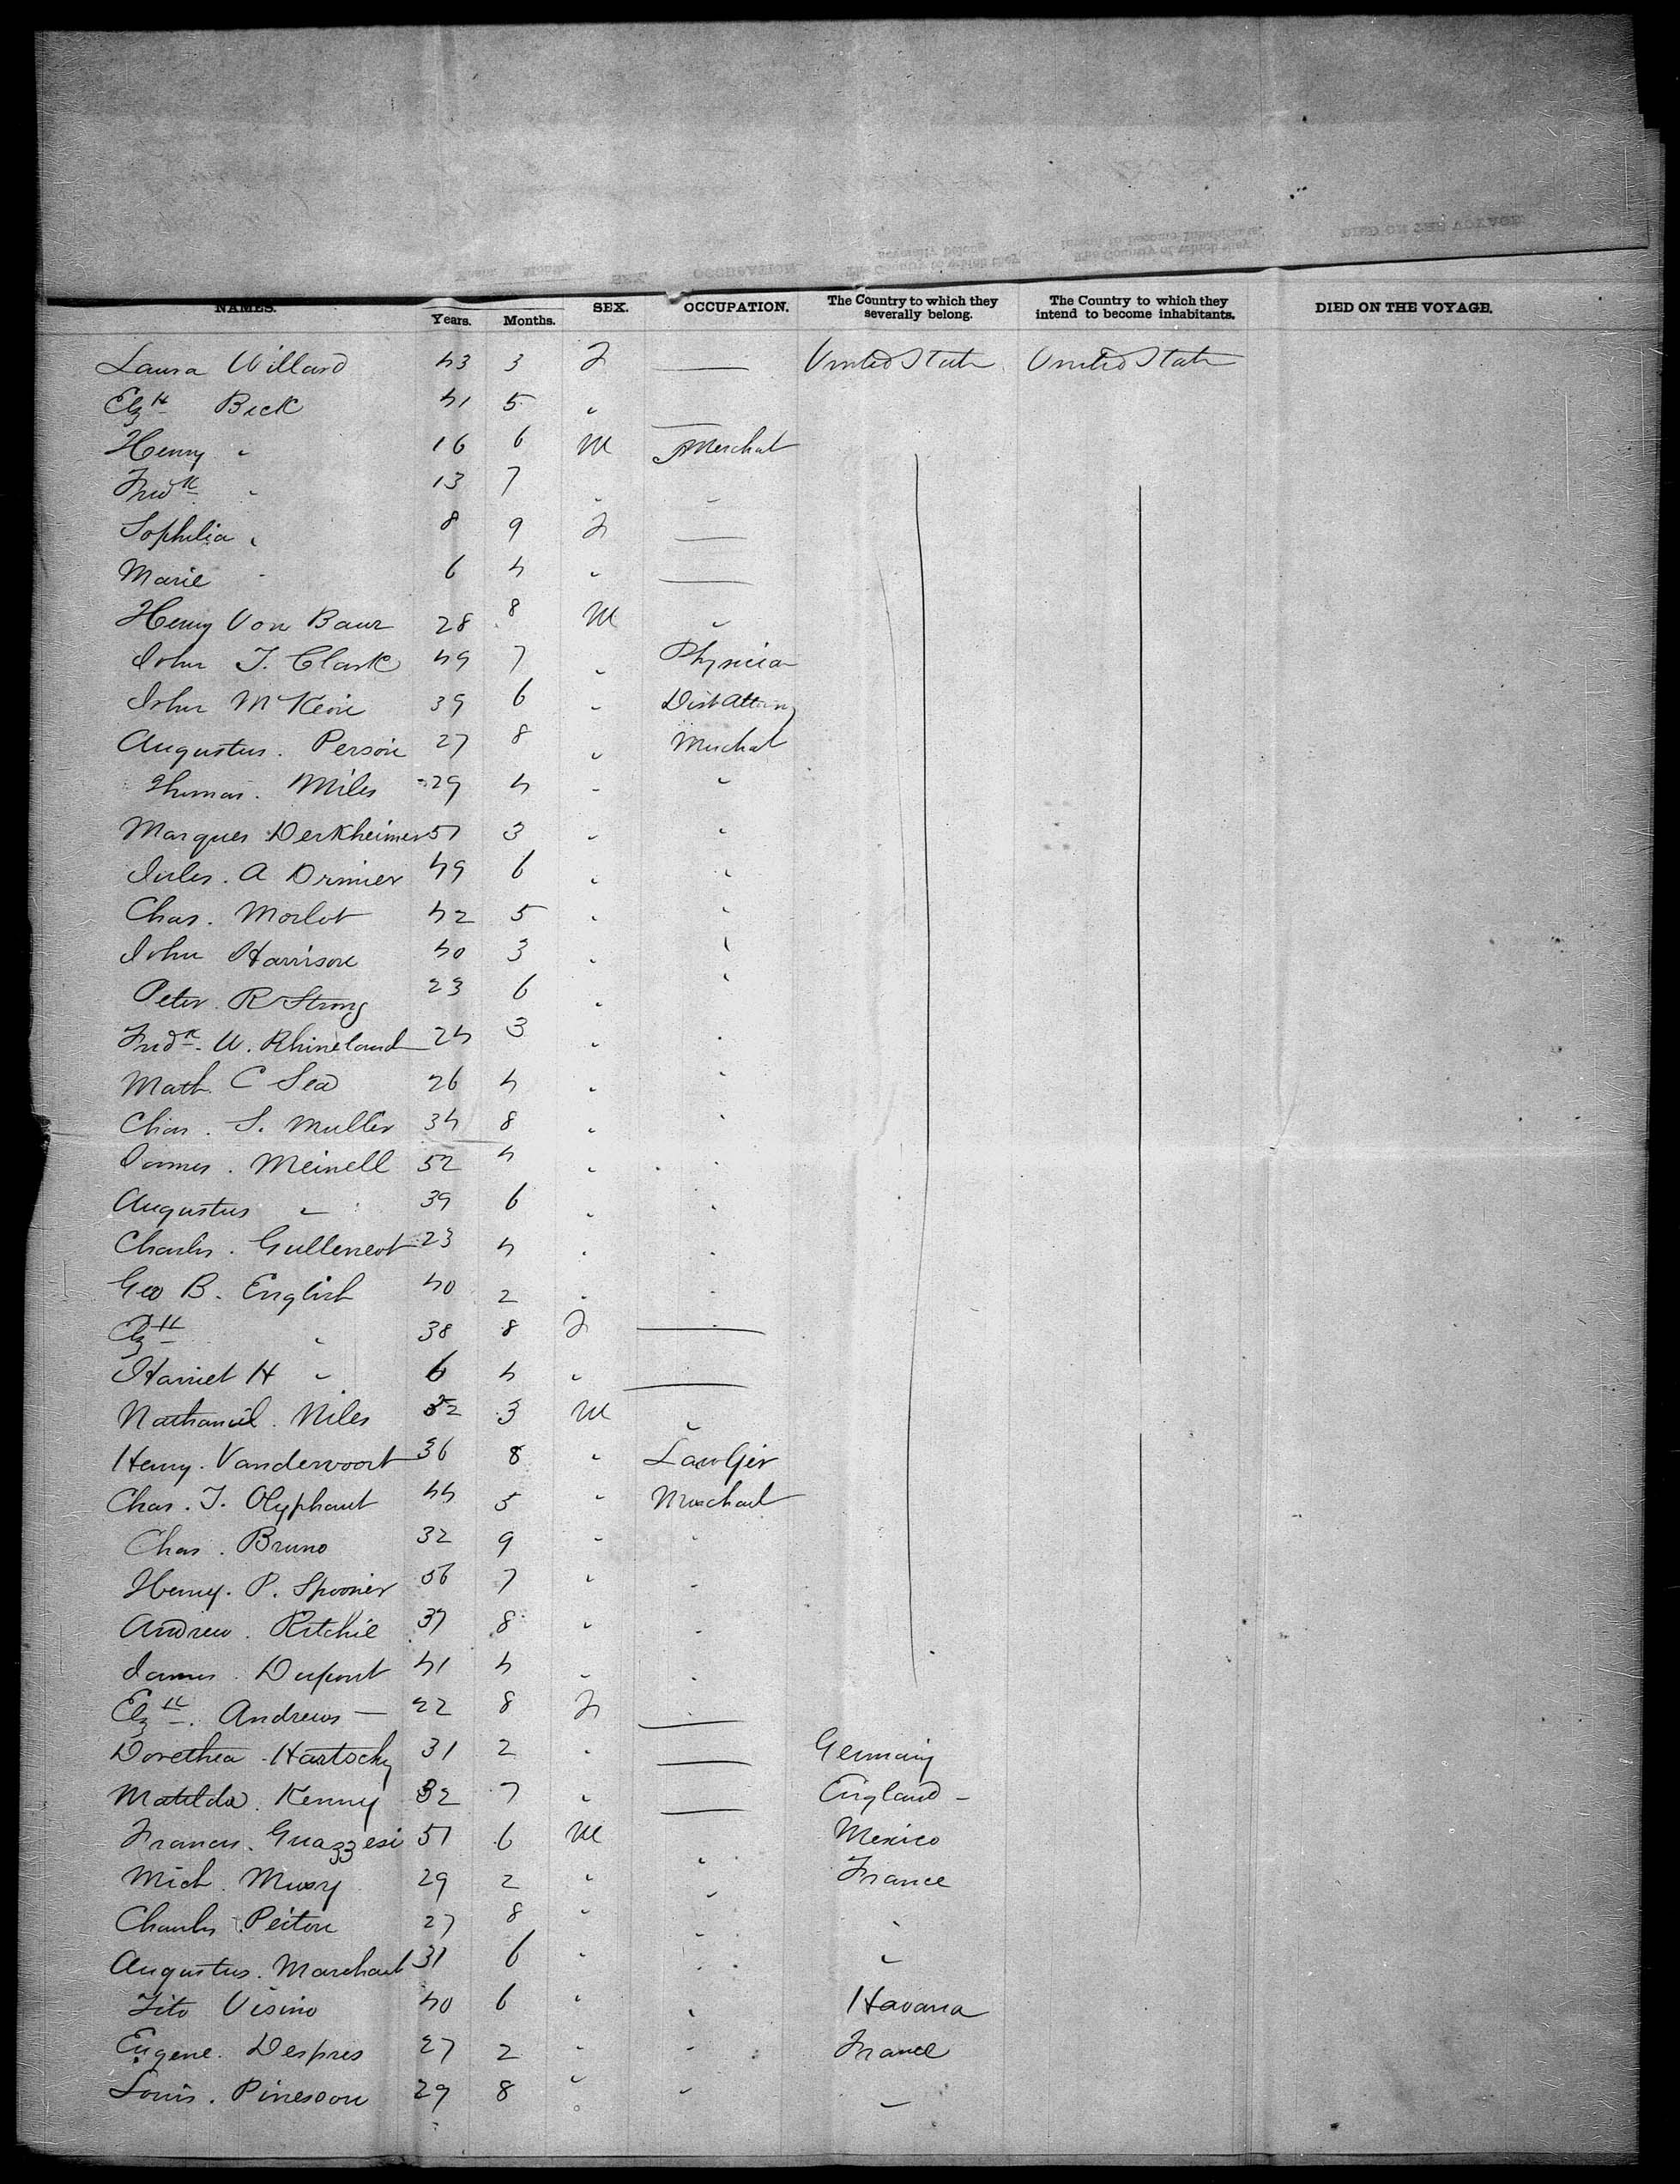 NAMES. Years. Months. SEX. OCCUPATION. The Country to which they severally belong. The Country to which they intend to become inhabitants. DIED ON THE VOYAGE.
Laura Willard 43 3 F — United State United State
Elzth Beck 41 5 "
Henry " 16 6 M Merchat
Fredk " 13 7 " "
Sophilia " 8 9 F —
Marie " 6 4 " —
Henry Von Baur 28 8 M "
John J. Clark 49 7 " Physician
John McKeon 39 6 " Dist Attorny
Augustus. Person 27 8 " Merchat
Thomas. Miles 29 4 " "
Marques Derkheimer 51 3 " "
Jules. A Drinier 49 6 " "
Chas. Morlot 42 5 " "
John Harrison 40 3 " "
Peter. R Strong 23 6 " "
Fredk. W. Rhineland 24 3 " "
Math. C Sea 26 4 " "
Chas. S. Muller 34 8 " "
James. Meinell 52 4 " "
Augustus " 39 6 " "
Charles. Gulleneot 23 4 " "
Geo B. English 40 2 " "
Elzth " 38 8 F —
Harriet H " 6 4 " —
Nathaniel. Niles 32 3 M "
Henry. Vandervoort 36 8 " Lawyer
Chas. J. Olyphant 44 5 " Merchant
Chas. Bruno 32 9 " "
Henry. P. Spooner 56 7 " "
Andrew. Ritchie 37 8 " "
James. Dupont 41 4 " "
Elzth. Andrews — 22 8 F —
Dorethea. Hartschy 31 2 " — Germany
Matilda. Kenny 32 7 " — England -
Francis. Guazzesi 51 6 M " Mexico
Mich. Muxy 29 2 " " France
Charles. Peiton 27 8 " " "
Augustus. Marchant 31 6 " " "
Tito Visino 40 6 " " Havana
Eugene. Despres 27 2 " " France
Louis. Pinesoon 29 8 " " "